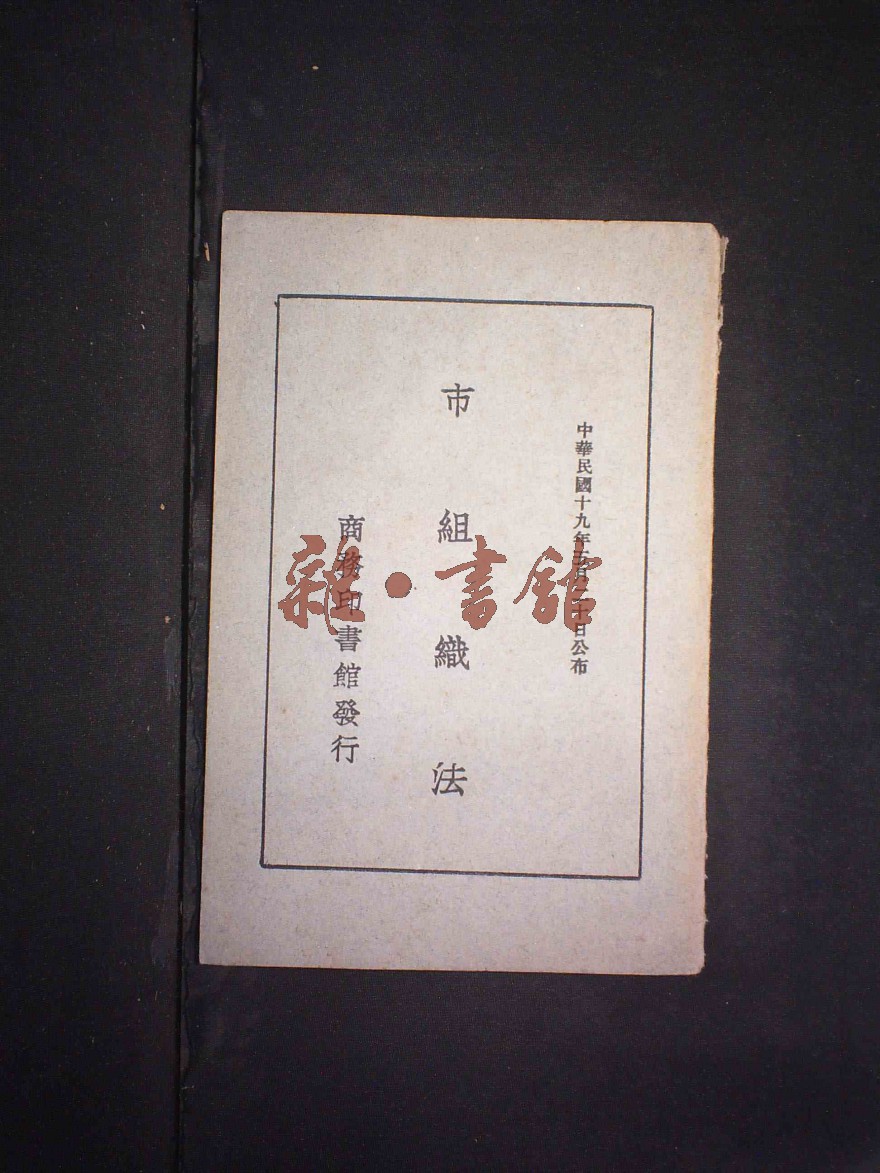 中華民國十九年五月二十日公布
市組織法
商務印書館發行
雜·書館